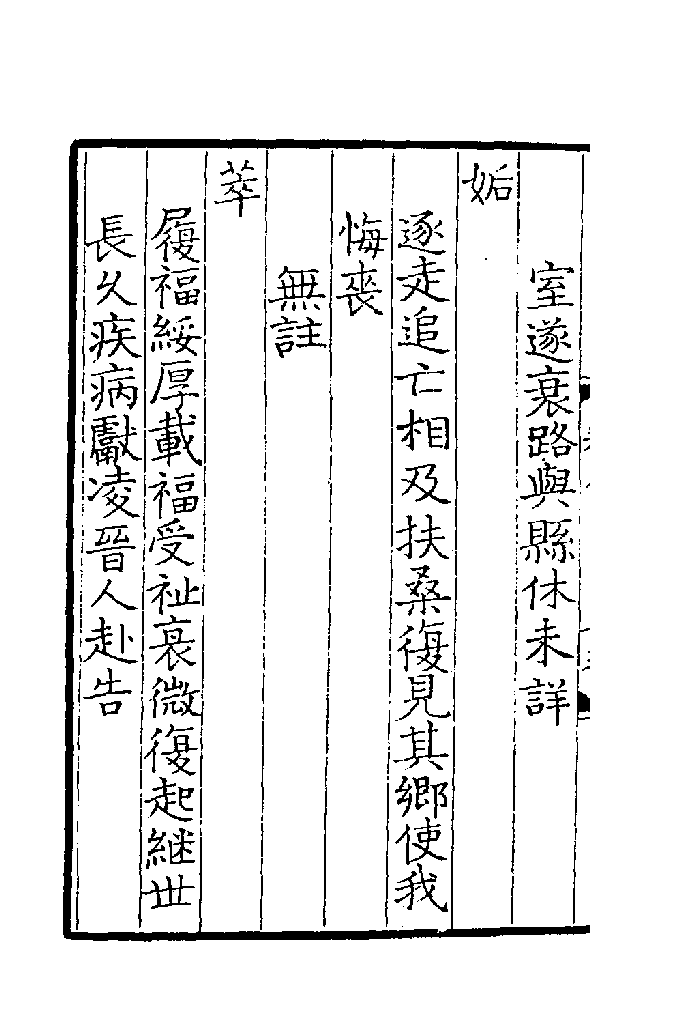 室遂衰路與縣休未詳
姤
逐走追亡相及扶桑復見其鄉使我
悔喪
無註
萃
履福綏厚載福受祉衰微復起継世
長久疾病獻凌晉人赴告